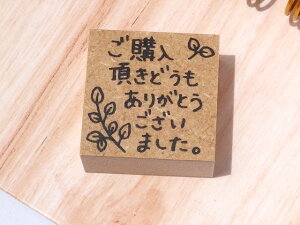 ご購入
頂きどうも
ありがとう
ござい
ました。